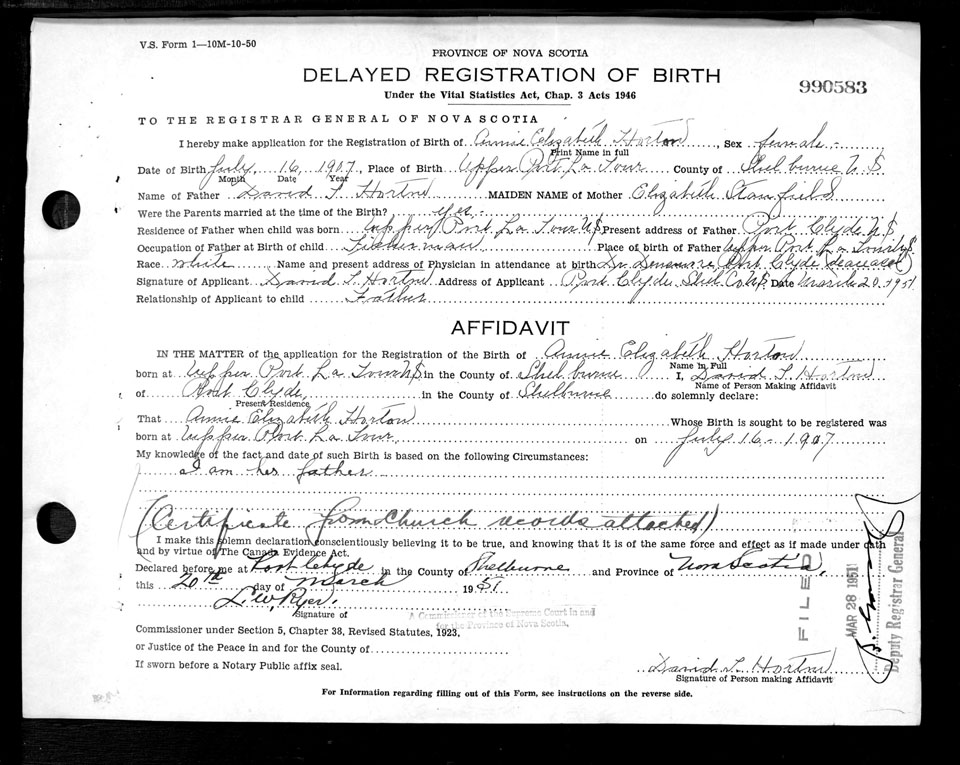 V.S. Form 1—10M-10-50
PROVINCE OF NOVA SCOTIA
DELAYED REGISTRATION OF BIRTH
990583
Under the Vital Statistics Act, Chap. 3 Acts 1946
TO THE REGISTRAR GENERAL OF NOVA SCOTIA
I hereby make application for the Registration of Birth of Annie Elizabeth Horton, Sex female
Print Name in full
Date of Birth July 16, 1907, Place of Birth Upper Port La Tour County of Shelburne N S
Month Date Year
Name of Father David L Horton MAIDEN NAME of Mother Elizabeth Stanfield
Were the Parents married at the time of the Birth? yes
Residence of Father when child was born Upper Port La Tour N S Present address of Father Port Clyde N S
Occupation of Father at Birth of child Fisherman Place of birth of Father Upper Port La Tour N S
Race White Name and present address of Physician in attendance at birth Dr Port Clyde (deceased)
Signature of Applicant David L Horton Address of Applicant Port Clyde Shel Co N S Date March 20, 1951
Relationship of Applicant to child Father
AFFIDAVIT
IN THE MATTER of the application for the Registration of the Birth of Annie Elizabeth Horton
Name in Full
born at Upper Port La Tour N S in the County of Shelburne I, David L Horton
Name of Person Making Affidavit
of Port Clyde, in the County of Shelburne do solemnly declare:
Present Residence
That Annie Elizabeth Horton Whose Birth is sought to be registered was
born at Upper Port La Tour on July 16 - 1907
My knowledge of the fact and date of such Birth is based on the following Circumstances:
I am her father
(Certificate from Church records attached)
I make this solemn declaration conscientiously believing it to be true, and knowing that it is of the same force and effect as if made under oath
and by virtue of The Canada Evidence Act.
Declared before me at Port Clyde in the County of Shelburne and Province of Nova Scotia,
this 20th day of March 1951
Signature of
A Commissioner of the Supreme Court in and
for the Province of Nova Scotia.
Commissioner under Section 5, Chapter 38, Revised Statutes, 1923,
or Justice of the Peace in and for the County of
If sworn before a Notary Public affix seal.
David L Horton
Signature of Person making Affidavit
For Information regarding filling out of this Form, see instructions on the reverse side.
FILED
MAR 28 1951
Deputy Registrar General